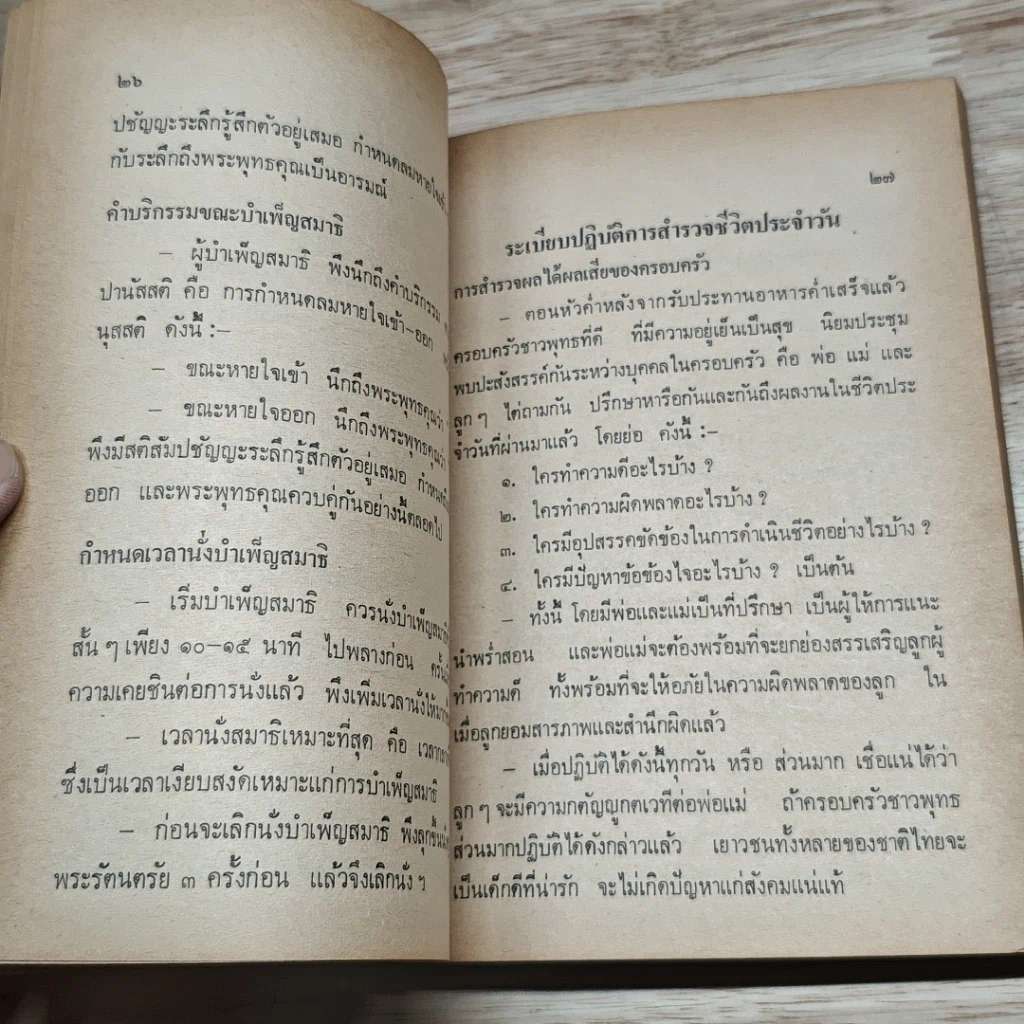 ๒๖
ปชัญญะระลึกรู้สึกตัวอยู่เสมอ กำหนดลมหายใจ
กับระลึกถึงพระพุทธคุณเป็นอารมณ์
คำบริกรรมขณะบำเพ็ญสมาธิ
– ผู้บำเพ็ญสมาธิ พึงนึกถึงคำบริกรรม
ปานัสสติ คือ การกำหนดลมหายใจเข้า–ออก
นุสสติ ดังนี้ :–
– ขณะหายใจเข้า นึกถึงพระพุทธคุณว่า
– ขณะหายใจออก นึกถึงพระพุทธคุณว่า
พึงมีสติสัมปชัญญะระลึกรู้สึกตัวอยู่เสมอ กำหนด
ออก และพระพุทธคุณควบคู่กันอย่างนี้ตลอดไป
กำหนดเวลานั่งบำเพ็ญสมาธิ
– เริ่มบำเพ็ญสมาธิ ควรนั่งบำเพ็ญสมาธิ
สั้น ๆ เพียง ๑๐–๑๕ นาที ไปพลางก่อน
ความเคยชินต่อการนั่งแล้ว พึงเพิ่มเวลานั่งให้
– เวลานั่งสมาธิเหมาะที่สุด คือ
ซึ่งเป็นเวลาเงียบสงัดเหมาะแก่การบำเพ็ญสมาธิ
– ก่อนจะเลิกนั่งบำเพ็ญสมาธิ พึงลุกขึ้น
พระรัตนตรัย ๓ ครั้งก่อน แล้วจึงเลิกนั่ง ฯ
๒๗
ระเบียบปฏิบัติการสำรวจชีวิตประจำวัน
การสำรวจผลได้ผลเสียของครอบครัว
– ตอนหัวค่ำหลังจากรับประทานอาหารค่ำเสร็จแล้ว
ครอบครัวชาวพุทธที่ดี ที่มีความอยู่เย็นเป็นสุข นิยมประชุม
พบปะสังสรรค์กันระหว่างบุคคลในครอบครัว คือ พ่อ แม่ และ
ลูก ๆ ไต่ถามกัน ปรึกษาหารือกันและกันถึงผลงานในชีวิตประ
จำวันที่ผ่านมาแล้ว โดยย่อ ดังนี้ :–
๑. ใครทำความดีอะไรบ้าง ?
๒. ใครทำความผิดพลาดอะไรบ้าง ?
๓. ใครมีอุปสรรคขัดข้องในการดำเนินชีวิตอย่างไรบ้าง ?
๔. ใครมีปัญหาข้อข้องใจอะไรบ้าง ? เป็นต้น
– ทั้งนี้ โดยมีพ่อและแม่เป็นที่ปรึกษา เป็นผู้ให้การแนะ
นำพร่ำสอน และพ่อแม่จะต้องพร้อมที่จะยกย่องสรรเสริญลูกผู้
ทำความดี ทั้งพร้อมที่จะให้อภัยในความผิดพลาดของลูก ใน
เมื่อลูกยอมสารภาพและสำนึกผิดแล้ว
– เมื่อปฏิบัติได้ดังนี้ทุกวัน หรือ ส่วนมาก เชื่อแน่ได้ว่า
ลูก ๆ จะมีความกตัญญูกตเวทีต่อพ่อแม่ ถ้าครอบครัวชาวพุทธ
ส่วนมากปฏิบัติได้ดังกล่าวแล้ว เยาวชนทั้งหลายของชาติไทยจะ
เป็นเด็กดีที่น่ารัก จะไม่เกิดปัญหาแก่สังคมแน่แท้